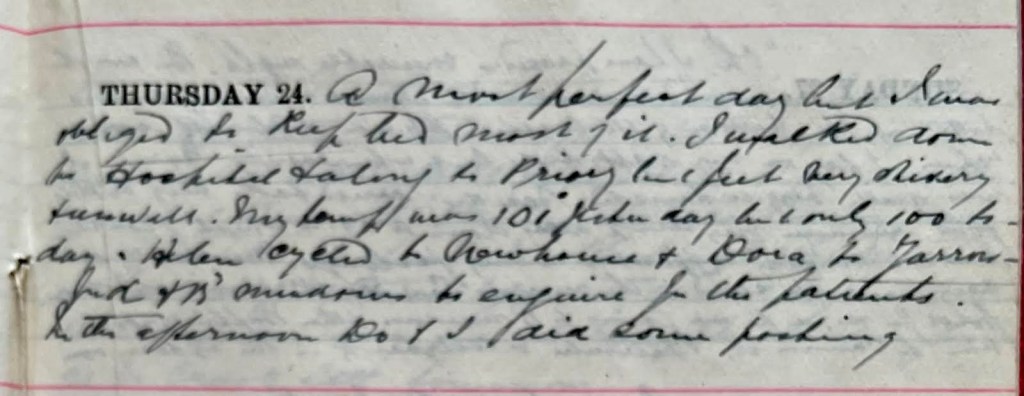 THURSDAY 24. A most perfect day but I was
obliged to keep bed most of it. I walked down
to Hospital & along to Priory but feel very shivery
& unwell. My temp was 101 yesterday but only 100 to-
day. Helen cycled to Newhouse & Dora to Yarrow-
& to enquire for the patients.
In the afternoon Do & I did some posting